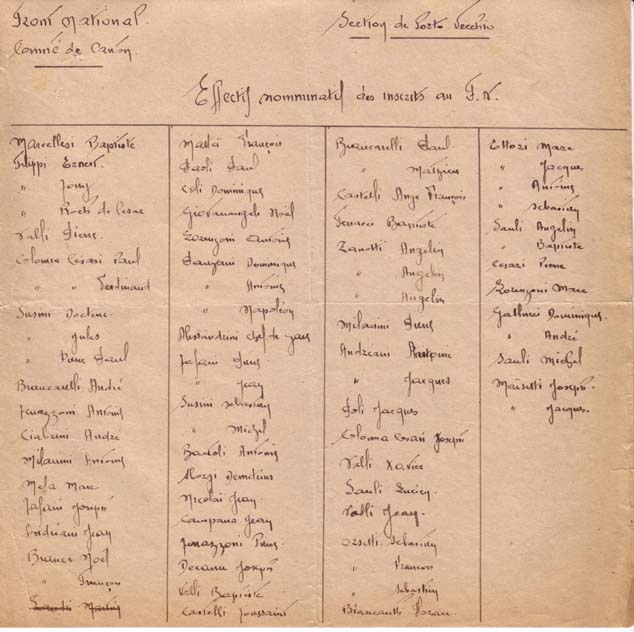 Front National.
Comité de Canton.
Section de Porto Vecchio
Effectif nomminatif des inscrits au F.N.
Marcellesi Baptiste
Filippi Ernest.
" Jony
" Roch de Cesar
Valli Pierre
Colonna Cesari Paul
" " Ferdinand
Susini Docteur
" Jules
" Paul
Biancarelli André
Antoine
Ciabrini André
Milanini Antoine
Mela Marc
Tafani Joseph
Andreani Jean
Noël
" François
Mattei François
Paoli Paul
Coli Dominique
Giovanangeli Noël
Lorenzoni Antoine
Dominique
" Antoine
" Napoléon
Alessandrini chef de gare
Tafani
" Jean
Susini Sebastien
" Michel
Bartoli Antoine
Alorgi Demetrius
Nicolai Jean
Campana Jean
Joseph
Velli Baptiste
Castelli Toussaint
Biancarelli Paul
" Mathieu
Castelli Ange François
Baptiste
Zanotti Angelin
" Angelin
" Angelin
Milanini
Andreani Antoine
" Jacques
Poli Jacques
Colonna Cesari Joseph
Valli Xavier
Sauli
Valli Jean.
Orsetti Sebastien
" François
" Sebastien
Biancarelli
Ettori Marc
" Jacques
" Antoine
" Sebastien
Sauli Angelin
" Baptiste
Cesari Pierre
Lorenzoni Marc
Gallucci Dominique.
" André
Sauli Michel
Maisetti Joseph.
" Jacques.